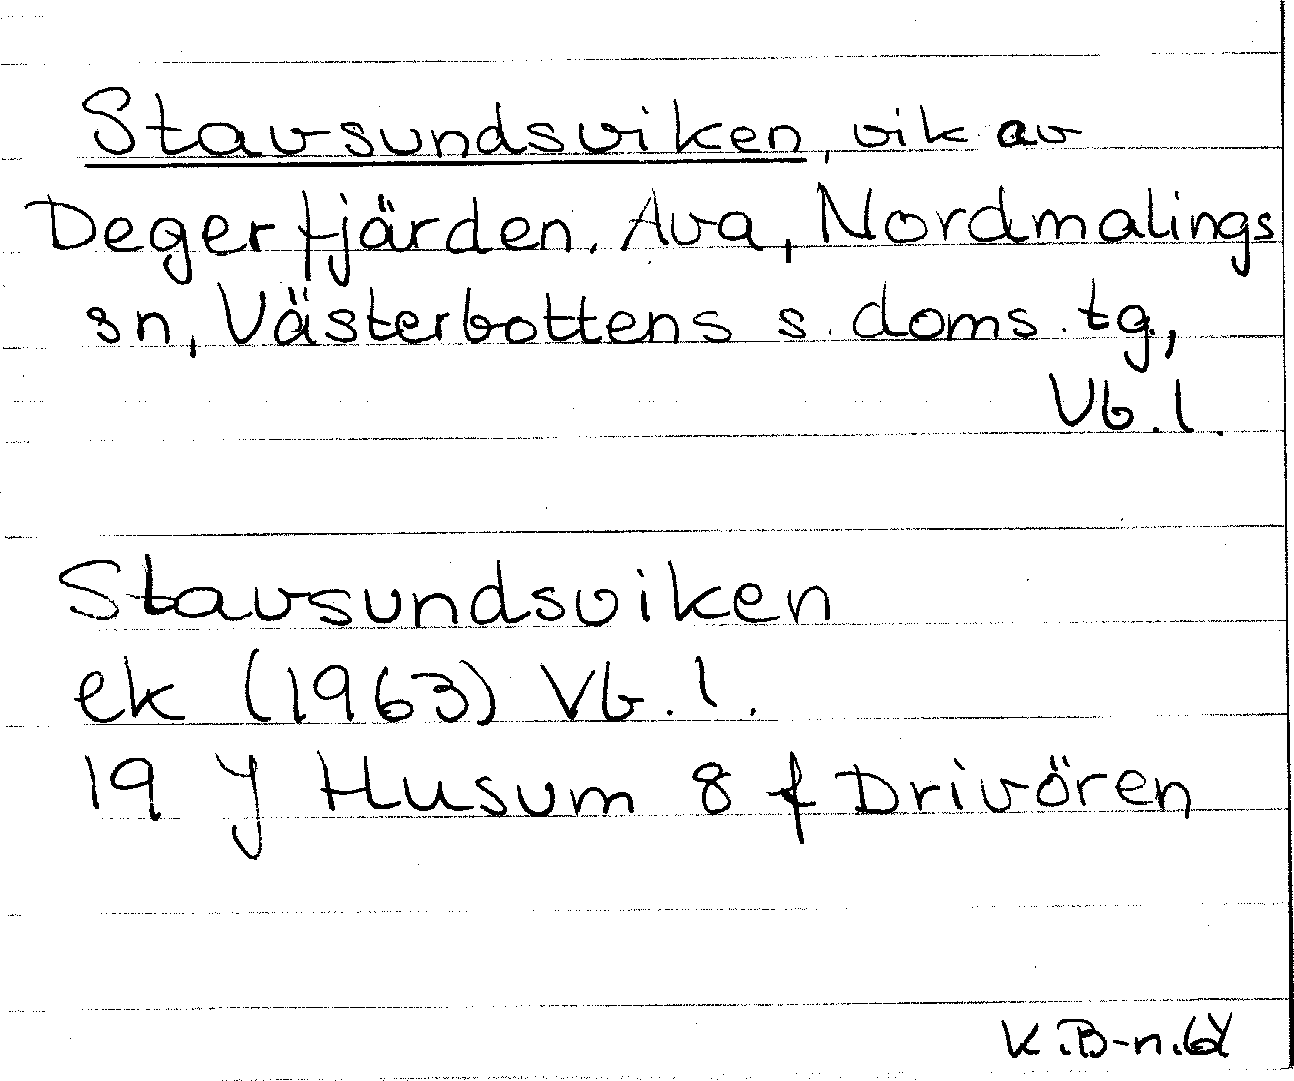 Stavsundsviken, vik av
Degerfjärden. Ava, Nordmalings
sn, Västerbottens s. doms. tg,
Vb. l.
Stavsundsviken
ek (1963) Vb. l.
19 J Husum 8 f Drivören
K.B-n.64